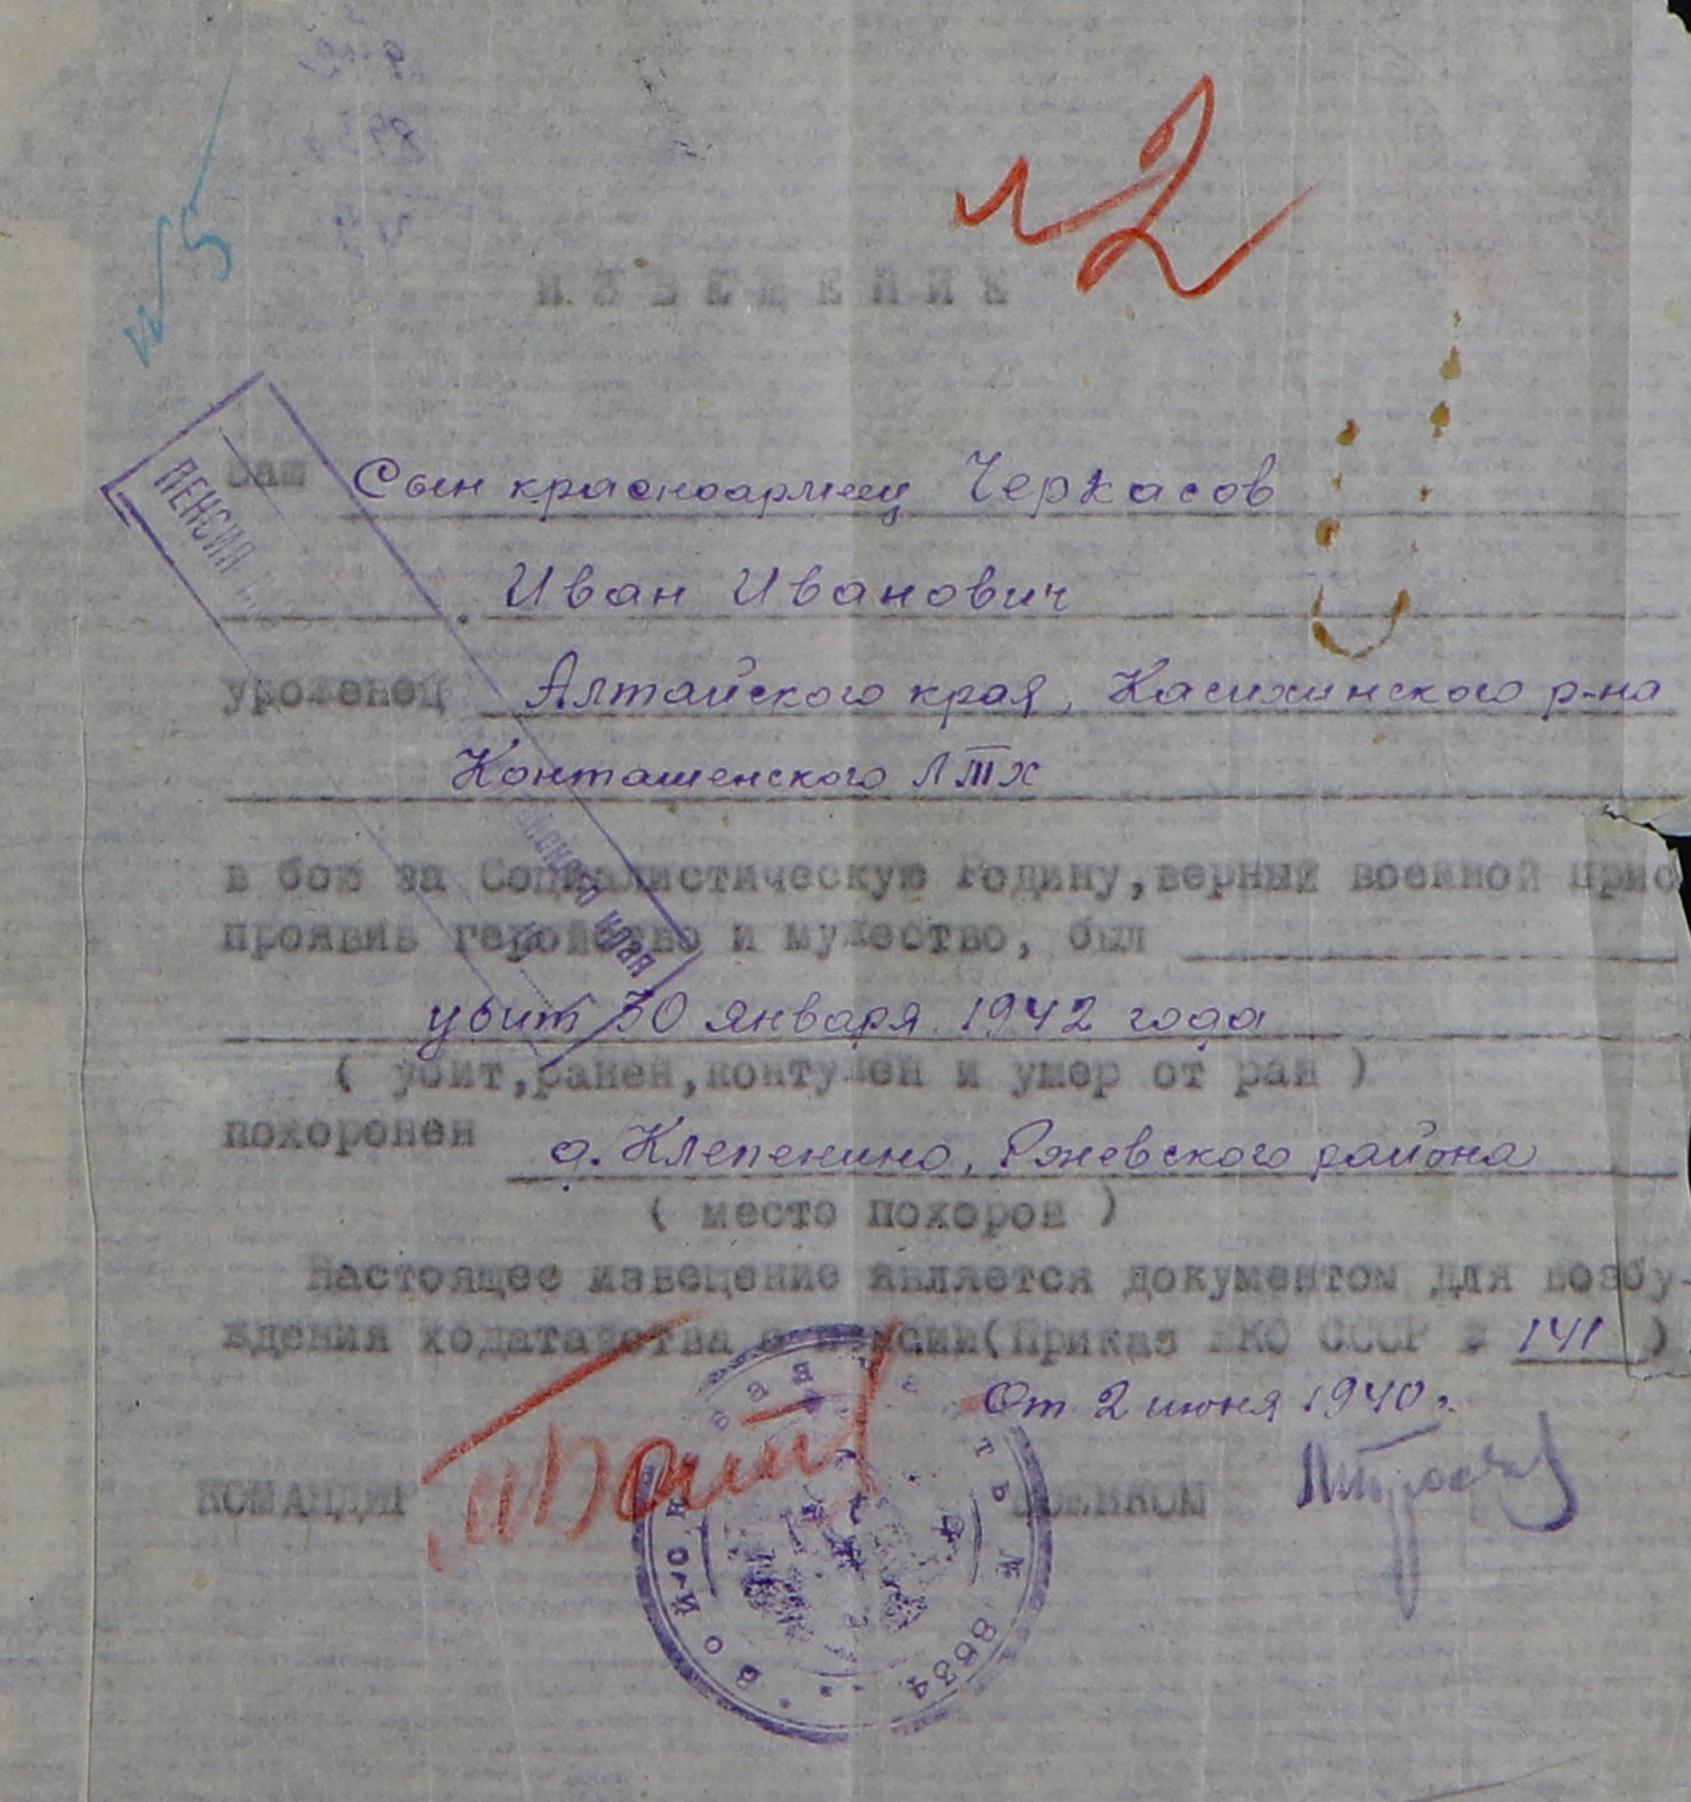 №2
№5
ИЗВЕЩЕНИЕ
Ваш Сын красноармеец Черкасов
Иван Иванович
уроженец Алтайского края, Касихинского р-на
Конташенского ЛТХ
в бою за Социалистическую Родину, верный военной прис
проявив геройство и мужество, был
убит 30 января 1942 года
( убит, ранен, контужен и умер от ран )
похоронен д. Клепенино, Ржевского района
( место похорон )
Настоящее извещение является документом для возбу-
ждения ходатайства о пенсии (Приказ НКО СССР № 141 )
От 2 июня 1940 г.
КОМАНДИР ВОЕНКОМ
ПЕНСИЯ
ского края
Войсковая часть № 8634